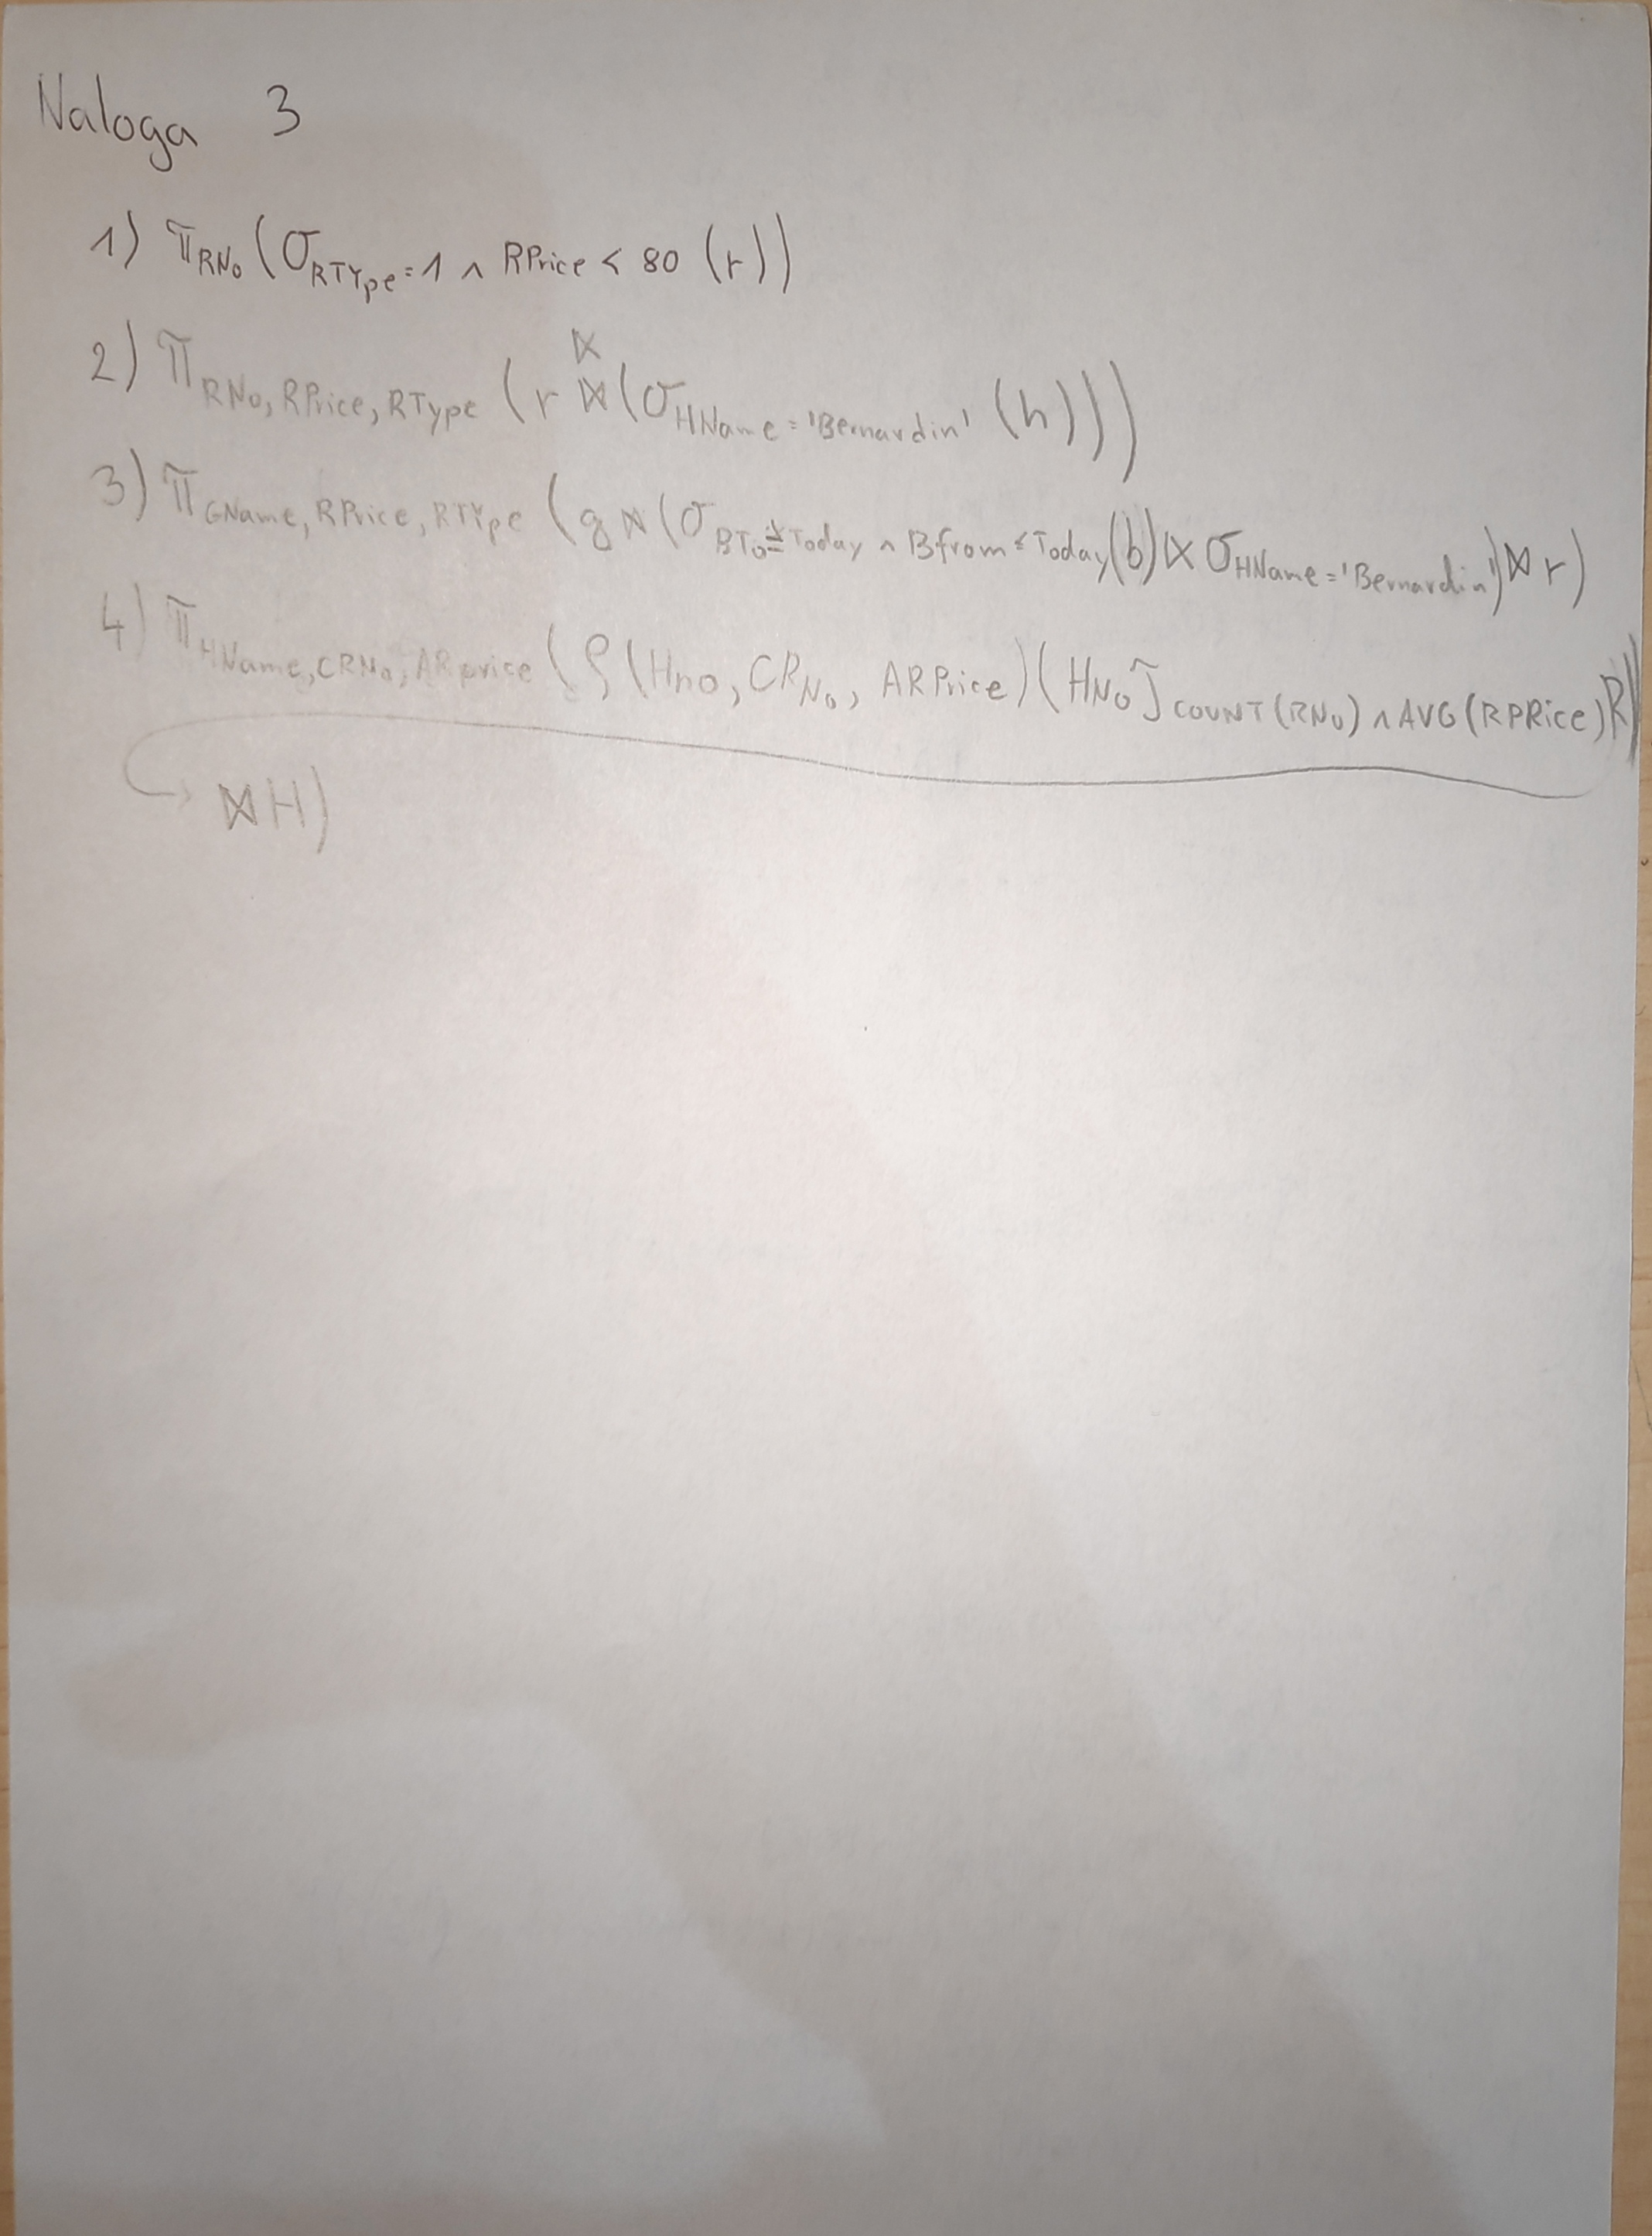 Naloga 3
1) π RNo (σ RType=1 ∧ RPrice < 80 (r))
⋉
2) π RNo, RPrice, RType (r ⋈ (σ HName = 'Bernardin' (h)))
3) π GName, RPrice, RType (g ⋈ (σ BTo ≥ Today ∧ Bfrom ≤ Today (b) ⋉ σ HName = 'Bernardin') ⋈ r)
4) π HName, CRNo, ARprice (ρ (Hno, CRNo, ARPrice) (HNo ℑ COUNT(RNo) ∧ AVG(RPRice) R))
⋈ H)